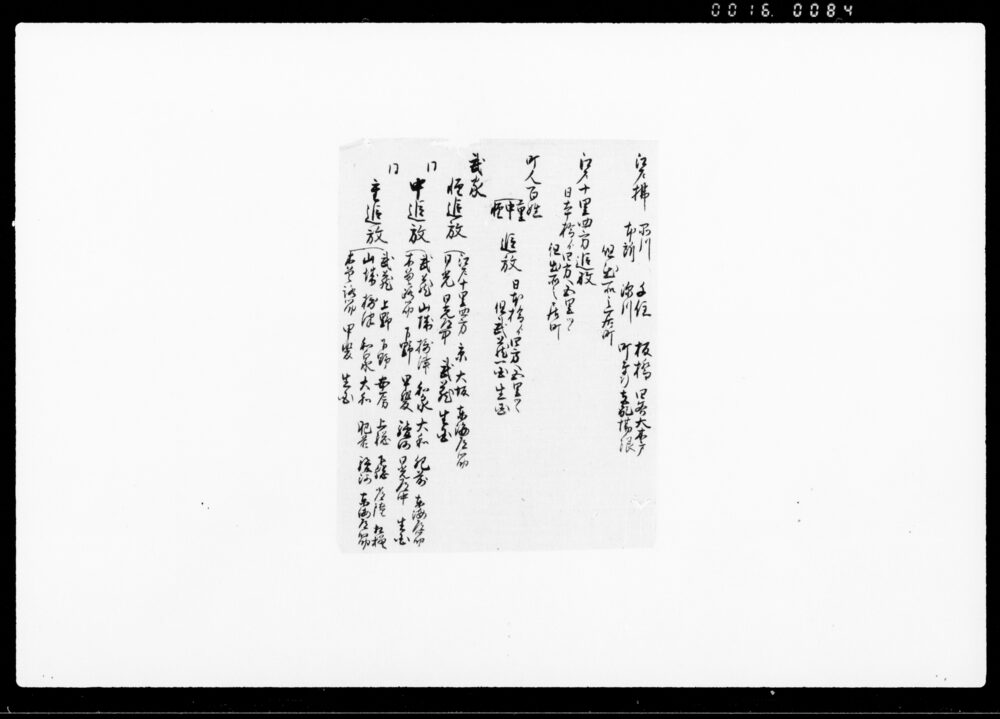 0016 0084
江戸拂 品川 千住 板橋 四谷大木戸
本所 深川 町奉行支配場限
但出所之居町
江戸十里四方追放
日本橋ゟ四方五里ツヽ
但出所之居町
町人百姓
重中軽 追放 日本橋ゟ四方五里ツヽ
但武蔵一国生国
武家
軽追放 江戸十里四方 京 大坂 東海道筋
日光 日光道中 武蔵 生国
同
中追放 武蔵 山城 摂津 和泉 大和 肥前 東海道筋
木曽路筋 下野 甲斐 駿河 日光道中 生国
同
重追放 武蔵 上野 下野 安房 上総 下総 常陸 相模
山城 摂津 和泉 大和 肥前 駿河 東海道筋
木曽路筋 甲斐 生国